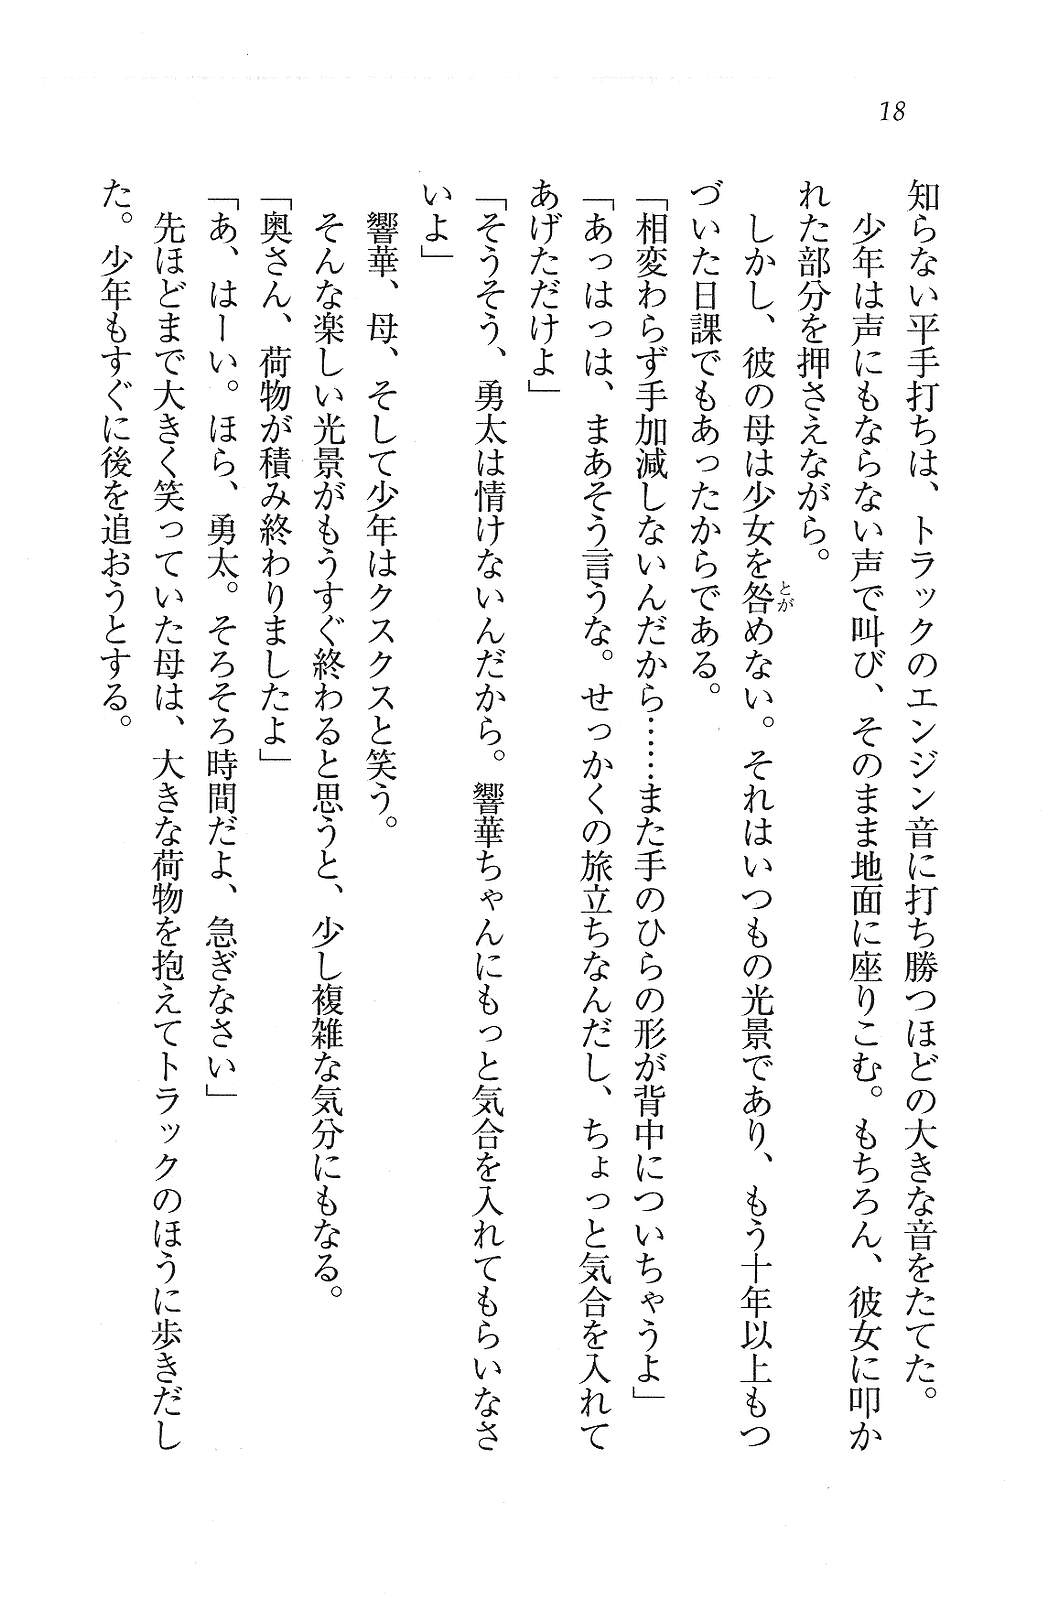 18
知らない平手打ちは、トラックのエンジン音に打ち勝つほどの大きな音をたてた。
少年は声にもならない声で叫び、そのまま地面に座りこむ。もちろん、彼女に叩か
れた部分を押さえながら。
しかし、彼の母は少女を咎めない。それはいつもの光景であり、もう十年以上もつ
とが
づいた日課でもあったからである。
「相変わらず手加減しないんだから……また手のひらの形が背中についちゃうよ」
「あっはっは、まあそう言うな。せっかくの旅立ちなんだし、ちょっと気合を入れて
あげただけよ」
「そうそう、勇太は情けないんだから。響華ちゃんにもっと気合を入れてもらいなさ
いよ」
響華、母、そして少年はクスクスと笑う。
そんな楽しい光景がもうすぐ終わると思うと、少し複雑な気分にもなる。
「奥さん、荷物が積み終わりましたよ」
「あ、はーい。ほら、勇太。そろそろ時間だよ、急ぎなさい」
先ほどまで大きく笑っていた母は、大きな荷物を抱えてトラックのほうに歩きだし
た。少年もすぐに後を追おうとする。